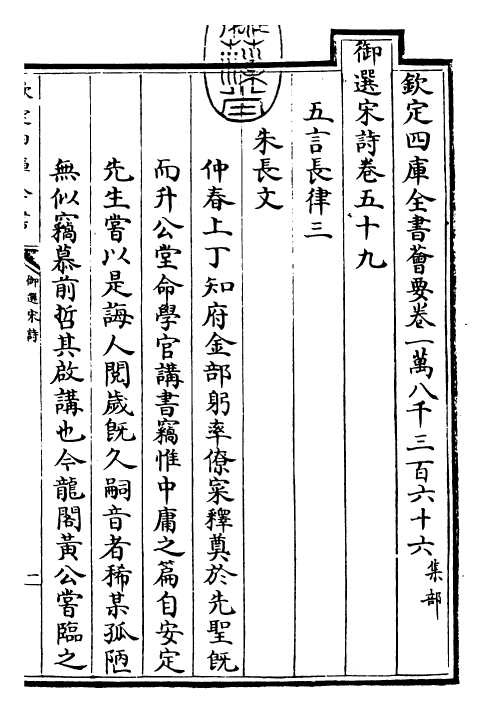 欽定四庫全書薈要卷一萬八千三百六十六集部
御選宋詩卷五十九
五言長律三
朱長文
仲春上丁知府金部躬率僚寀釋奠於先聖既
而升公堂命學官講書竊惟中庸之篇自安定
先生嘗以是誨人閲歲既久嗣音者稀某孤陋
無似竊慕前哲其啟講也今龍閣黃公嘗臨之
御選宋詩
一